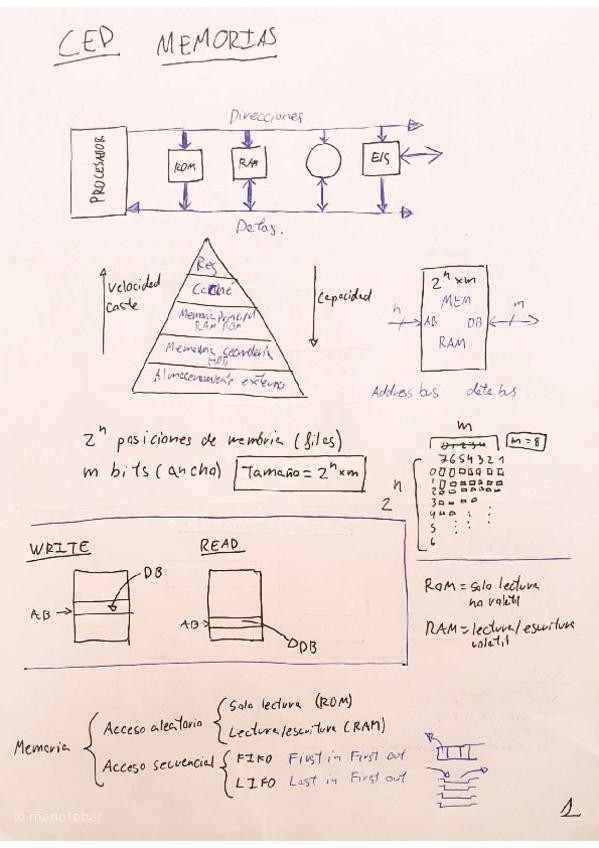 CED MEMORIAS
Direcciones
PROCESADOR
ROM
RAM
E/S
Datos.
velocidad
coste
Reg
Caché
Memoria principal
RAM ROM
Memoria secundaria
(HDD)
Almacenamiento externo
capacidad
2^n x m
MEM
n
AB DB
m
RAM
Address bus data bus
2^n posiciones de memoria (filas)
m bits (ancho) Tamaño = 2^n x m
m
01234
m = 8
7654321
2^n
0
1
2
3
4
5
6
WRITE
DB
AB
READ
AB
DB
ROM = solo lectura
no volatil
RAM = lectura/escritura
volatil
Memoria
Acceso aleatorio
Solo lectura (ROM)
Lectura/escritura (RAM)
Acceso secuencial
FIFO First in First out
LIFO Last in First out
1
© manotebar